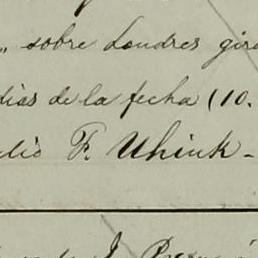 „ sobre Londres gira
dias de la fecha (10.
elio F. Uhink -